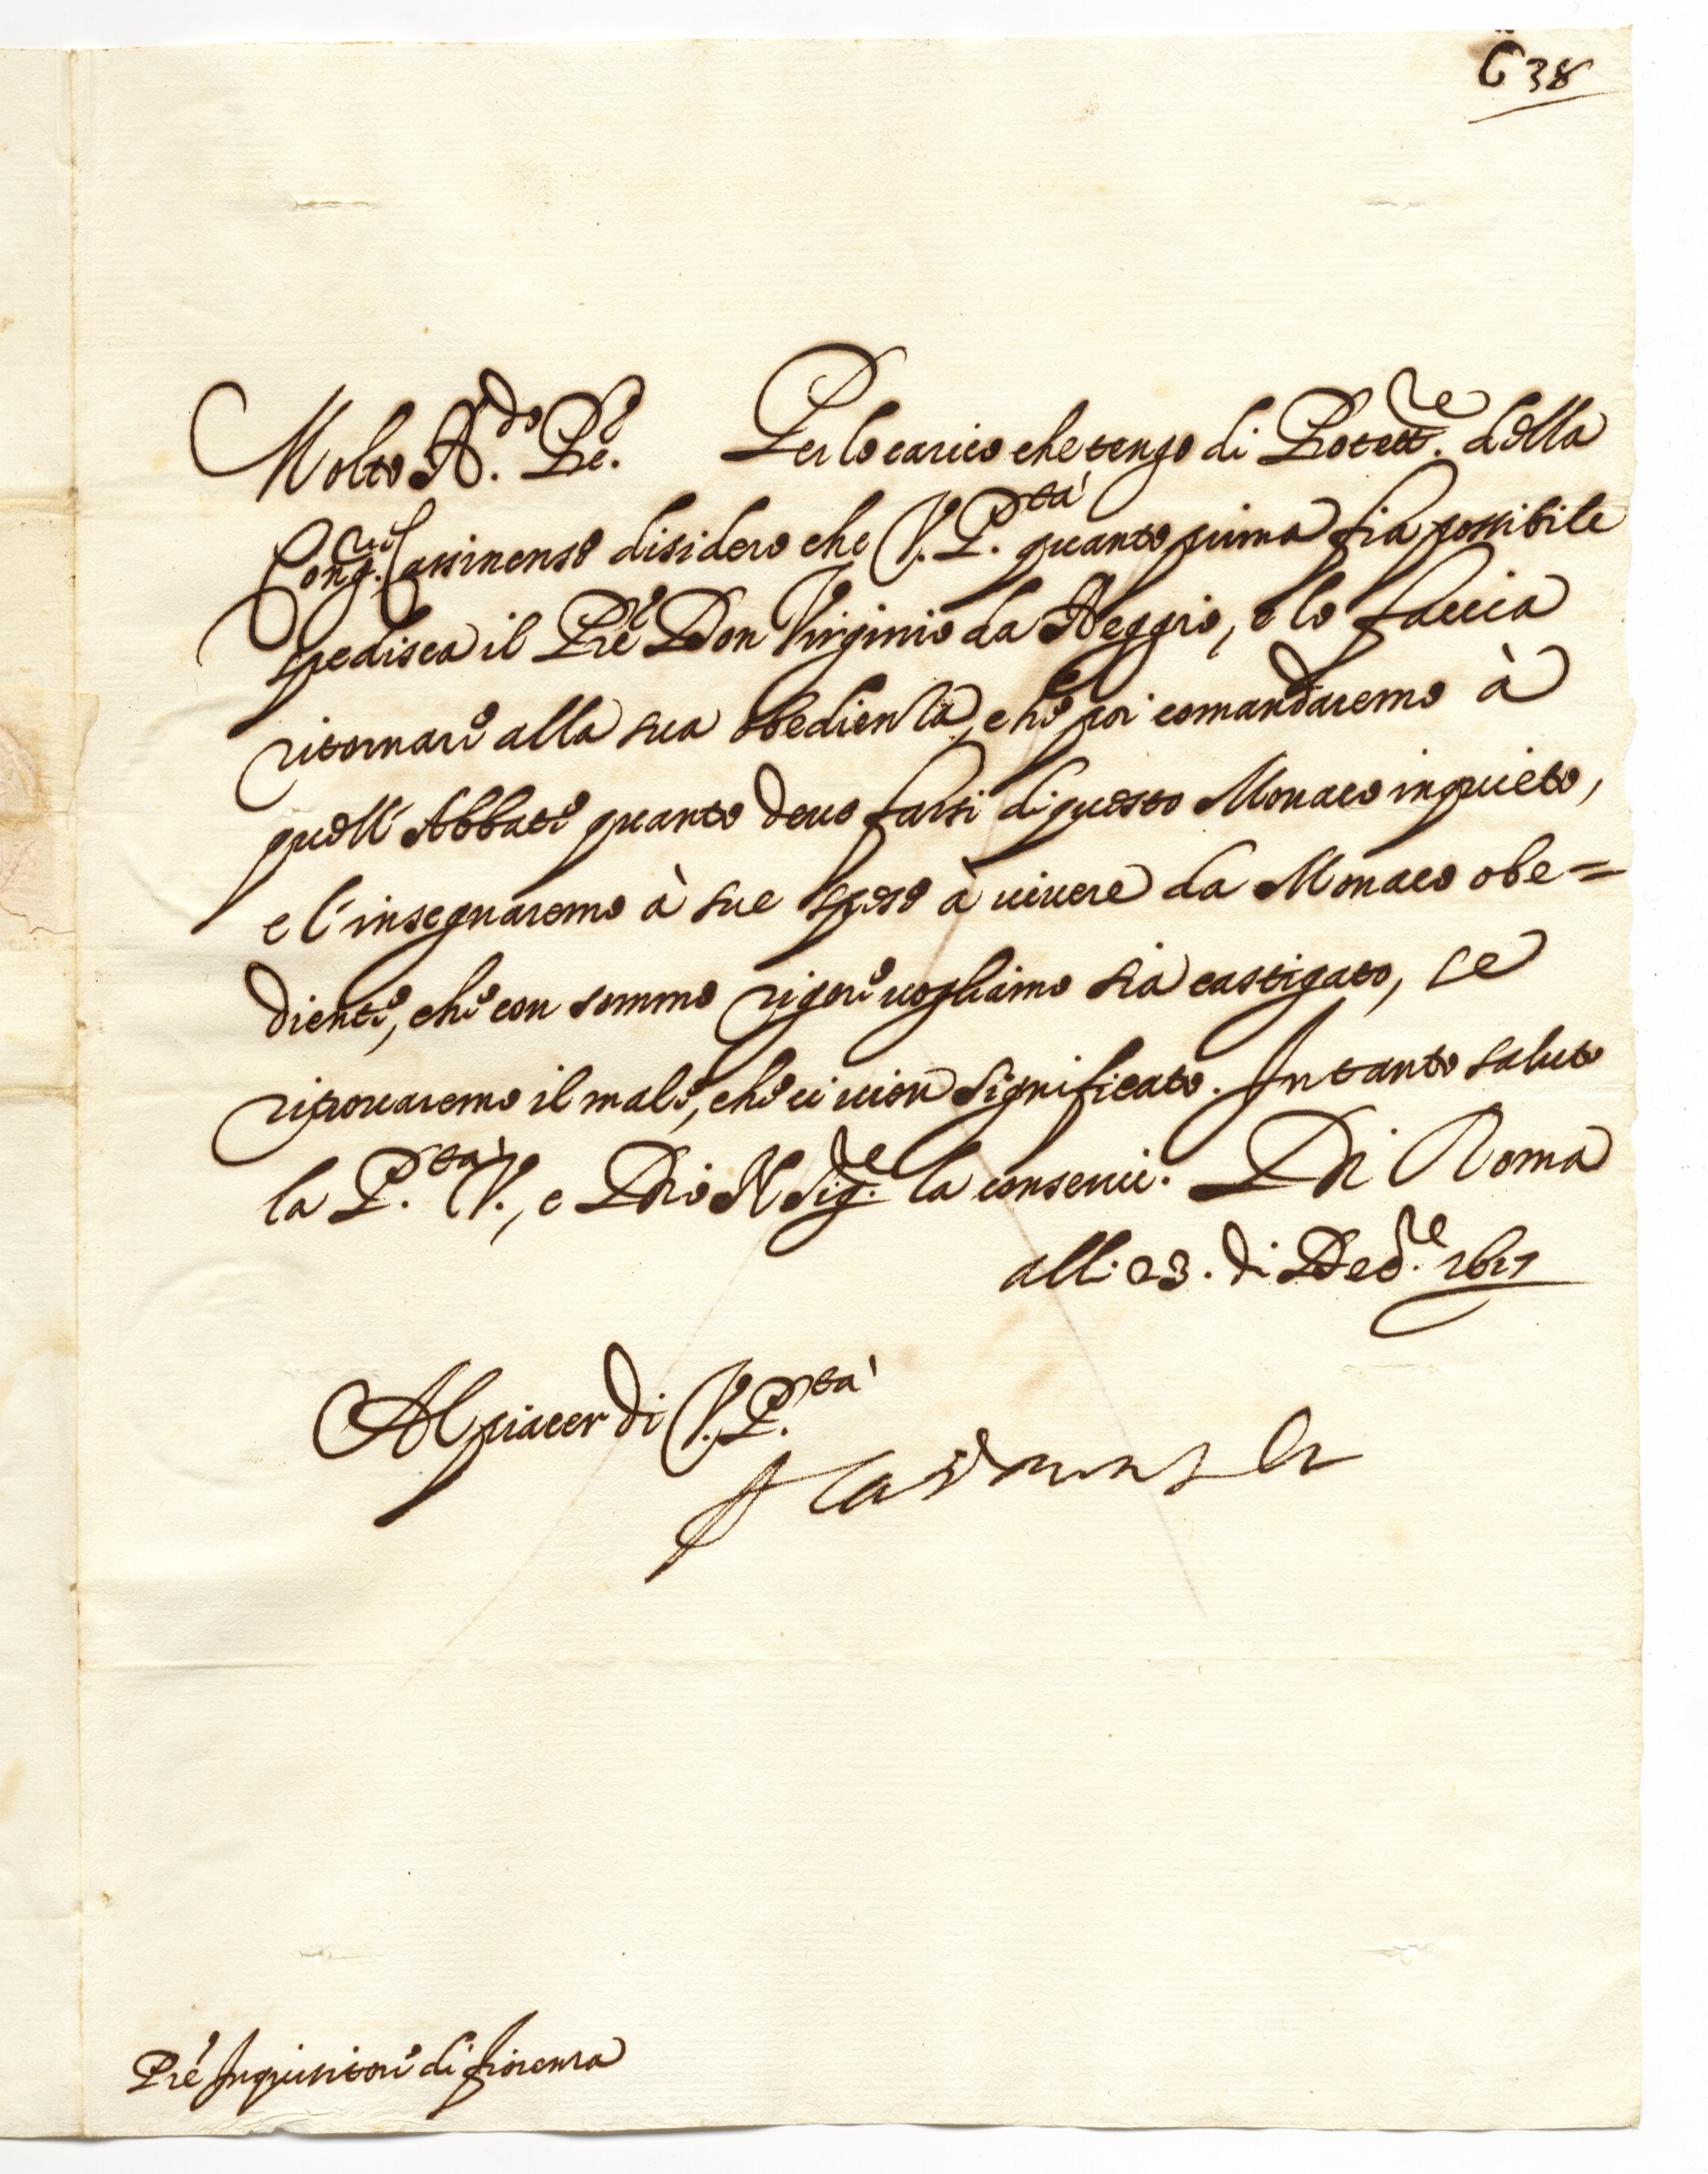 638
Molto R.do Pre. Per lo carico che tengo di Protett.re della
Cong.ne Cassinense disidero che V. P.tà quanto prima sia possibile
spedisca il Pre Don Virginio da Reggio, e lo faccia
ritornare alla sua obedienza, che poi comandaremo à
quell'Abbate quanto deue farsi di questo Monaco inquieto,
e l'insegnaremo à sue spese à uiuere da Monaco obe=
diente, che con sommo rigore uogliamo sia castigato, se
ritrouaremo il male, che ci uien significato. Intanto saluto
la P.tà V., e Dio N Sig.re la conserui. Di Roma
alli 23. di Dec.re 1617
Al piacer di V. P.tà
Pre Inquisitore di Fiorenza